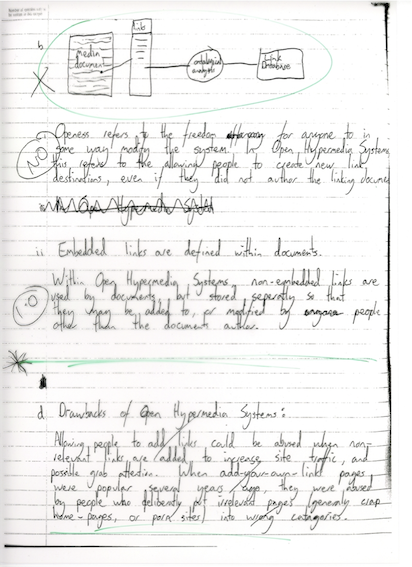 b
Media
document
links
ontological
analysis
Link
Database
i Openess refers to the freedom for anyone to in
some way modify the system. In Open Hypermedia Systems
this refers to the allowing people to create new link
destinations, even if they did not author the linking document
ii Embedded links are defined within documents.
Within Open Hypermedia Systems, non-embedded links are
used by documents, but stored seperatly so that
they may be added to, or modified by people
other than the documents author.
1.0
d Drawbacks of Open Hypermedia Systems:
Allowing people to add links could be abused when non-
relevant links are added to increase site traffic, and
possible grab attention. When add-your-own-link pages
were popular several years ago, they were abused
by people who deliberatly put irrelevant pages (generaly crap
home-pages, or porn sites) into wrong catagories.